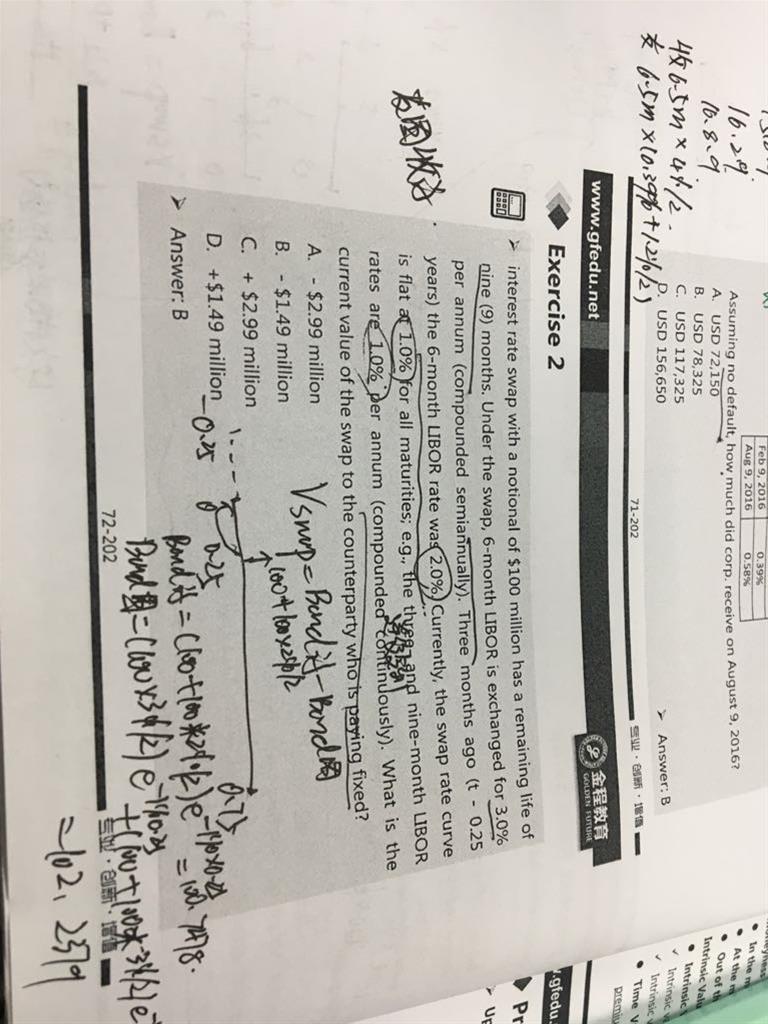 16.2.9.
16.8.9
收 6.5m × 4%/2.
支 6.5m × (0.39% + 1.2%/2)
Feb 9, 2016 0.39%
Aug 9, 2016 0.58%
Assuming no default, how much did corp. receive on August 9, 2016?
A. USD 72,150
B. USD 78,325
C. USD 117,325
D. USD 156,650
➢ Answer: B
71-202
专业·创新·增值
www.gfedu.net
金程教育
GOLDEN FUTURE
Exercise 2
➢ interest rate swap with a notional of $100 million has a remaining life of
nine (9) months. Under the swap, 6-month LIBOR is exchanged for 3.0%
per annum (compounded semiannually). Three months ago (t - 0.25
years) the 6-month LIBOR rate was 2.0%. Currently, the swap rate curve
is flat at 1.0% for all maturities; e.g., the three and nine-month LIBOR
rates are 1.0% per annum (compounded continuously). What is the
current value of the swap to the counterparty who is paying fixed?
A. - $2.99 million
B. - $1.49 million
C. + $2.99 million
D. +$1.49 million
➢ Answer: B
支固收浮
V swap = Bond浮 - Bond固
100+100×2%/2
-0.25 0 0.25 0.75
Bond浮 = (100+100×2%/2) e^-1%×0.25 = 100.7478.
Bond固 = (100×3%/2) e^-1%×0.25 + (100+100×3%/2) e
= 102.2379
72-202
专业·创新·增值
In the m
At the m
Out of th
Intrinsic Valu
Intrinsic
Intrinsic
Time V
premiu
.gfedu.
Pr